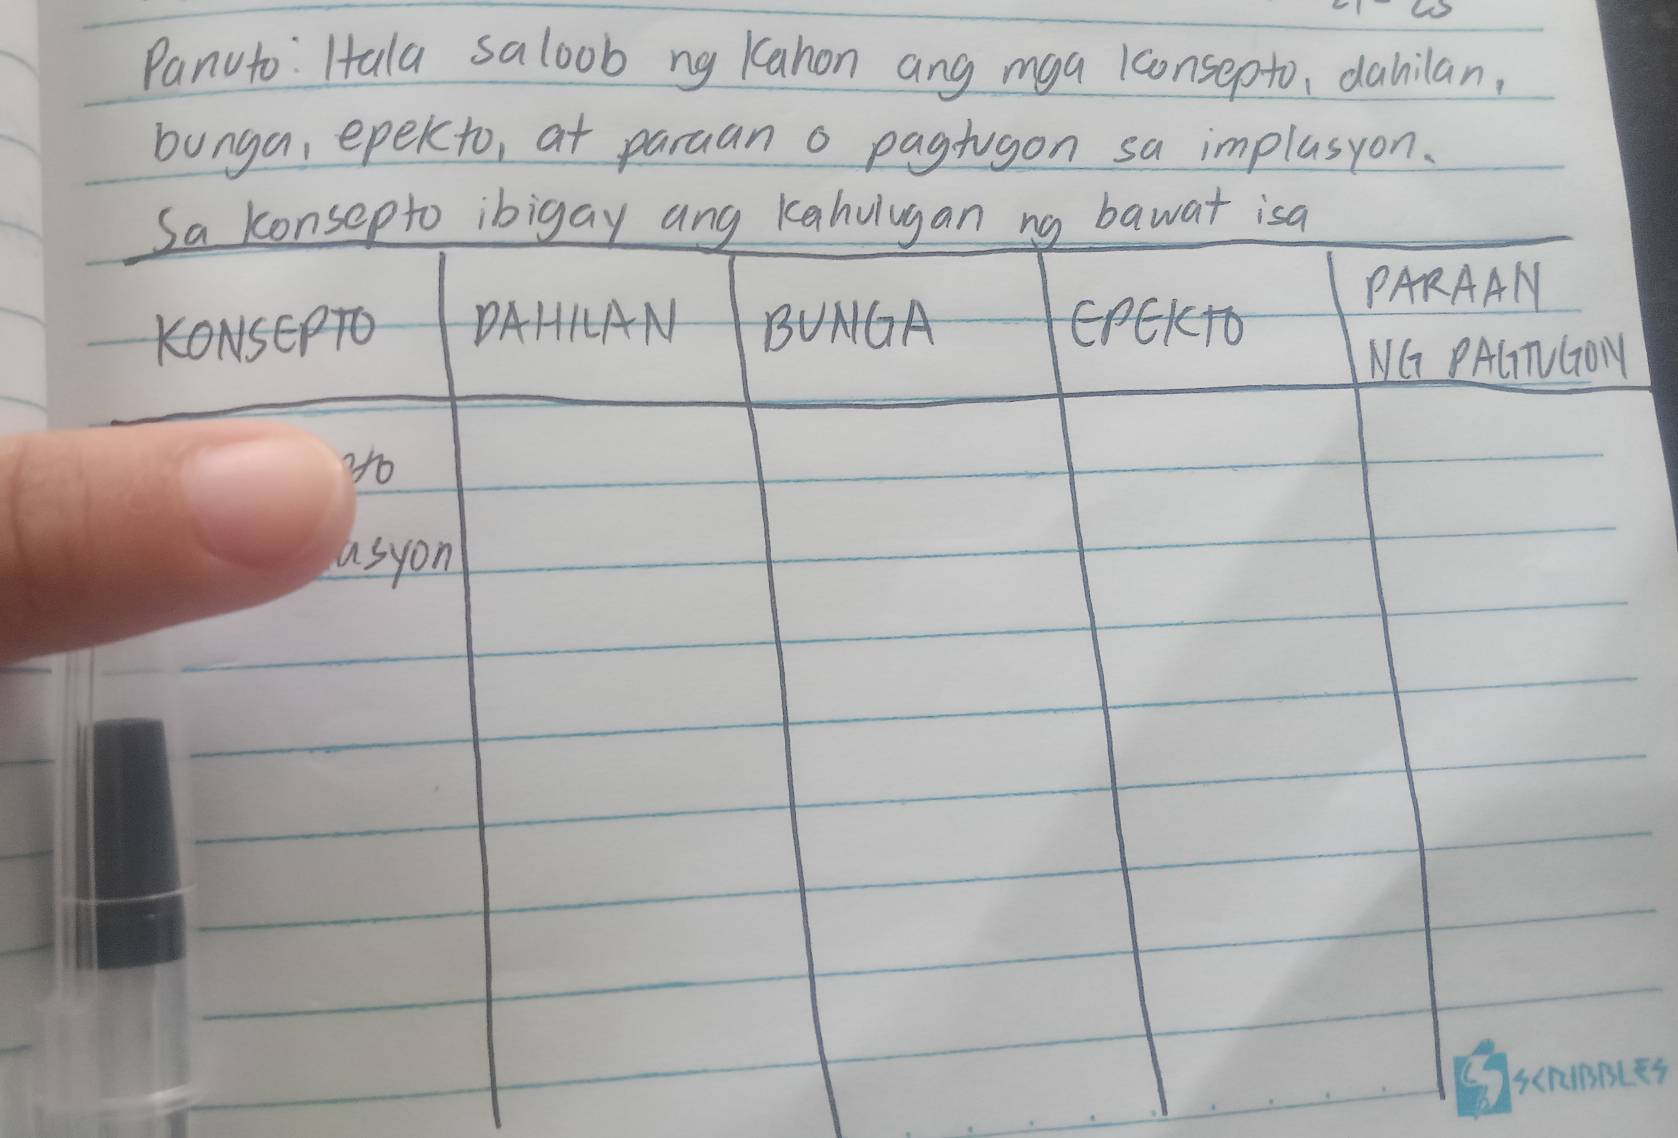 Panuto: Itala saloob ng kahon ang mga konsepto, dahilan,
bunga, epekto, at paraan o pagtugon sa implasyon.
Sa konsepto ibigay ang kahulugan ng bawat isa
KONSEPTO DAHILAN BUNGA EPEKTO PARAAN
NG PAGTUGON
SCRIBBLES